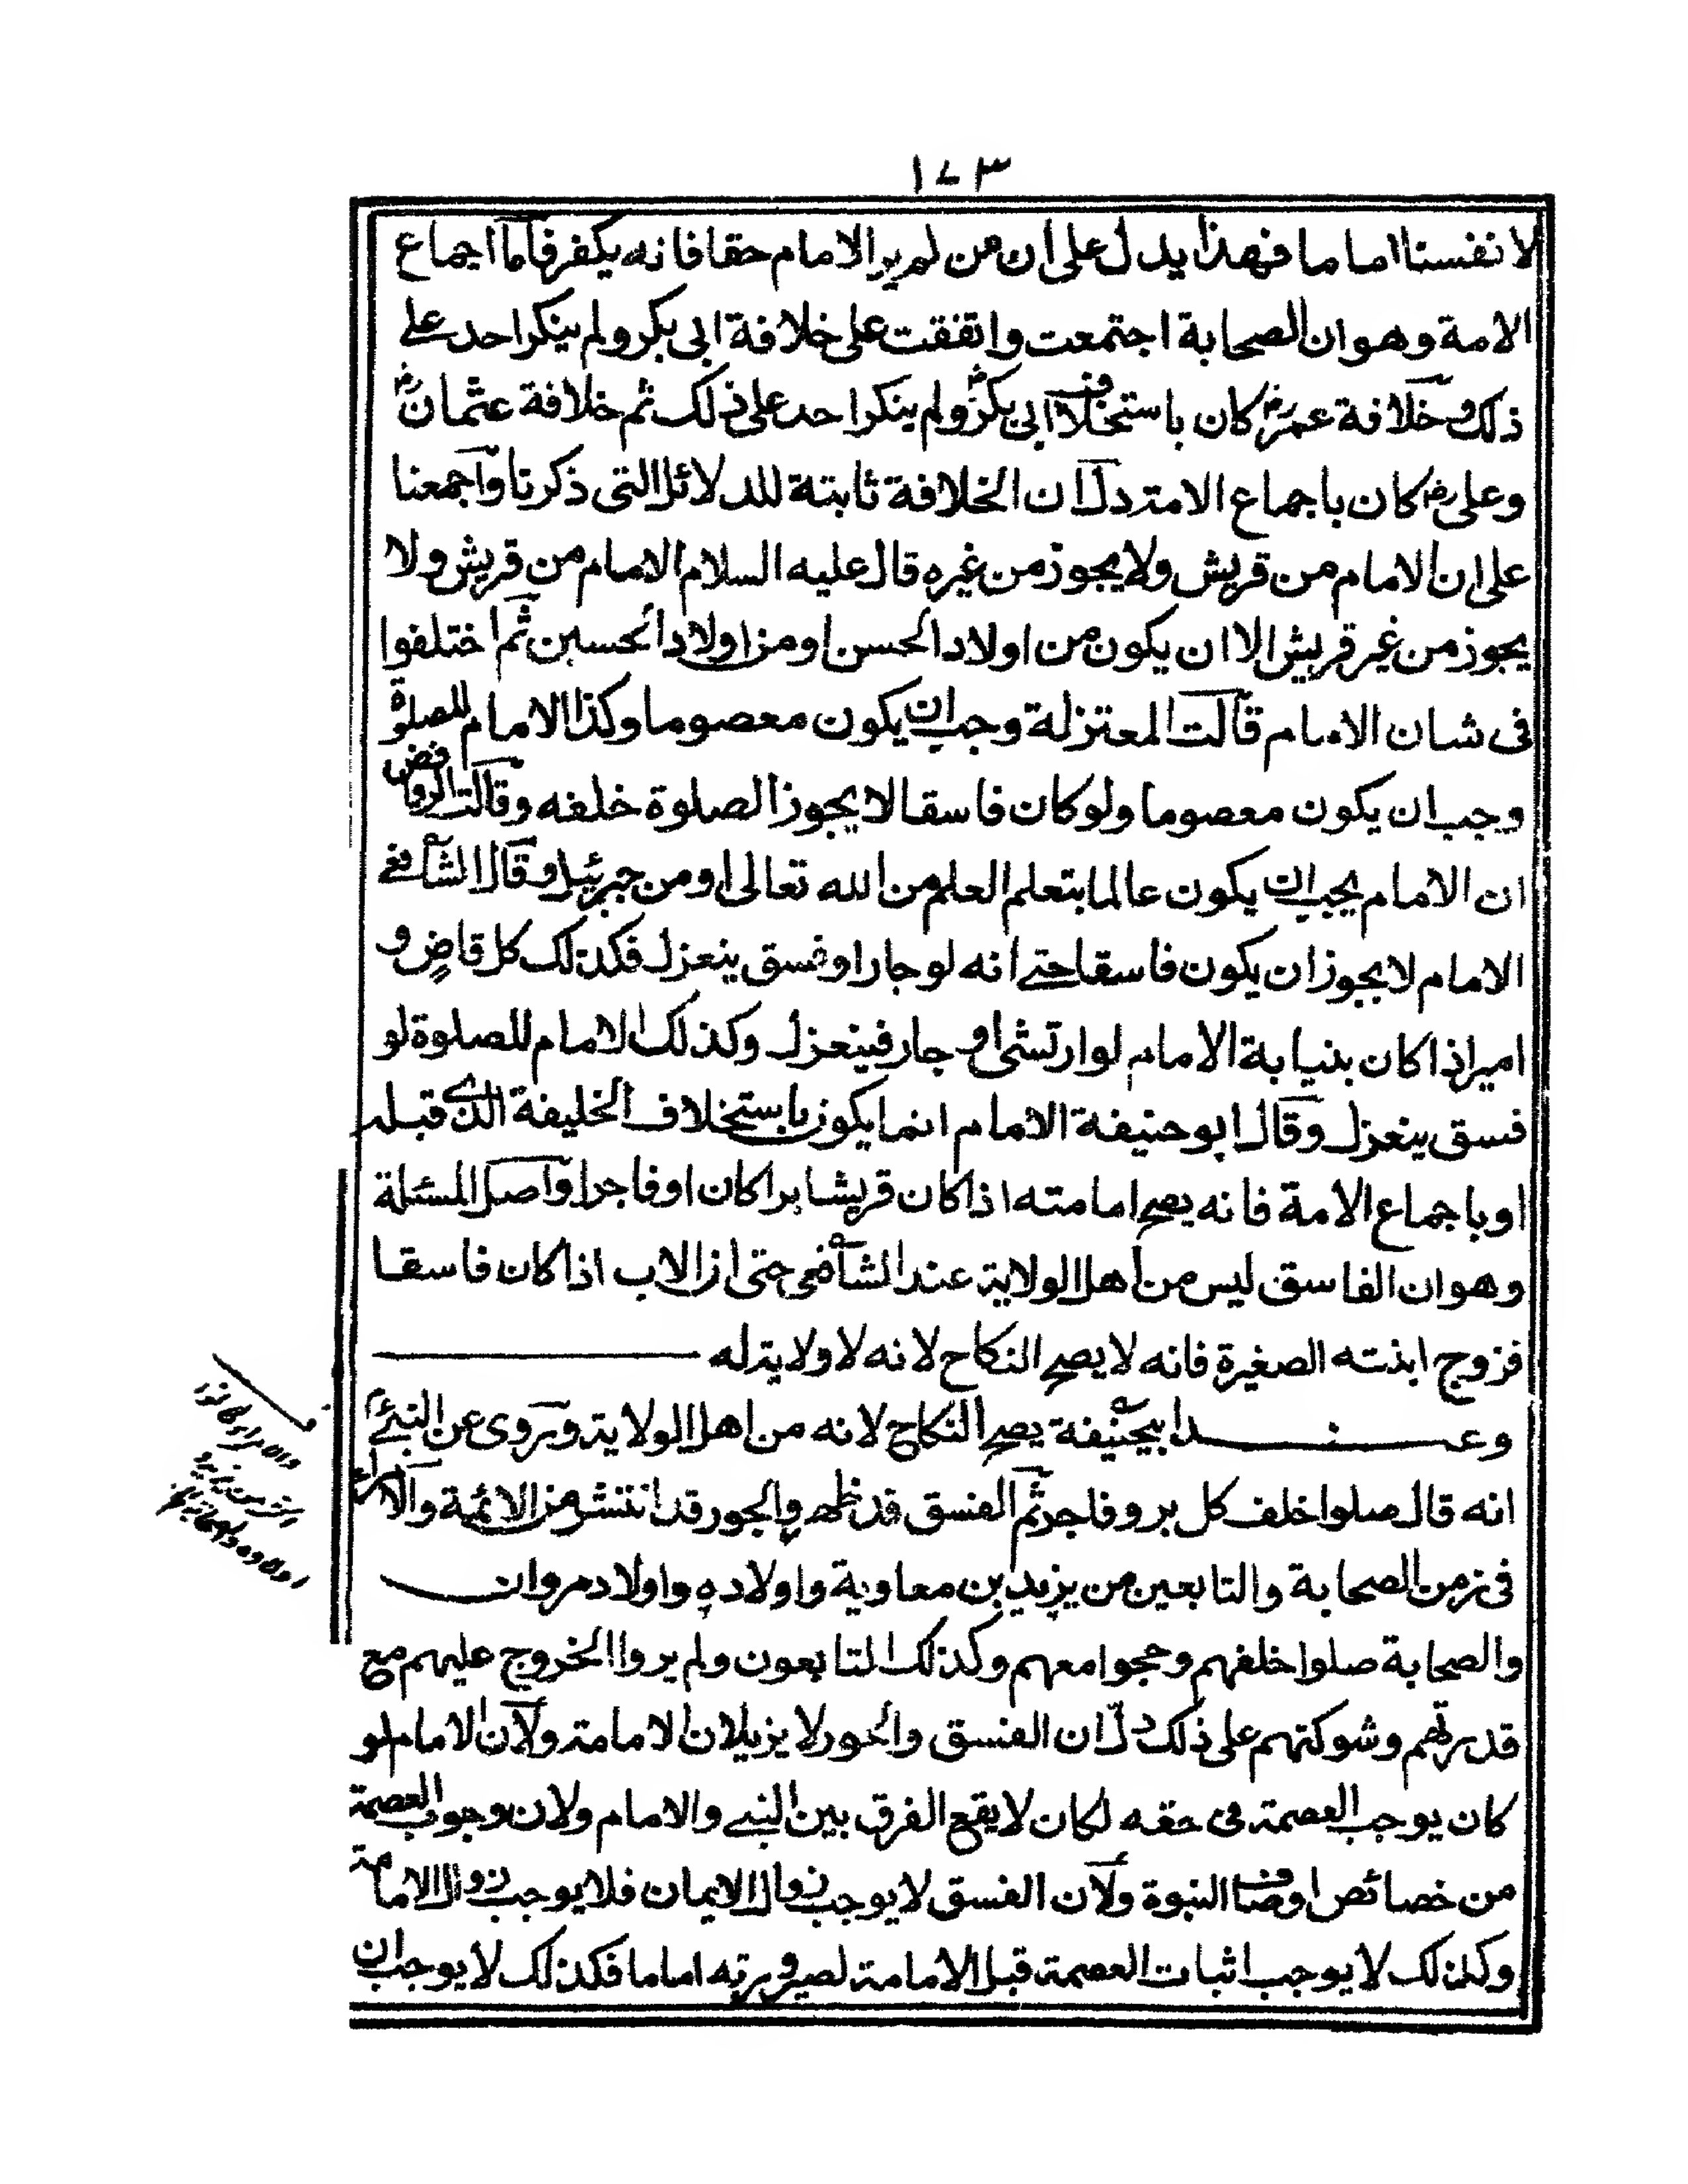 ١٧٣
لانفسنا اماما فهذا يدل على ان من لم ير الامام حقا فانه يكفر فاما اجماع
الامة وهو ان الصحابة اجتمعت واتفقت على خلافة ابى بكر ولم ينكر احد على
ذلك وخلافة عمر رض كان باستخلاف ابى بكر رض ولم ينكر احد على ذلك ثم خلافة عثمان رض
وعلى رض كان باجماع الامة دل ان الخلافة ثابتة للدلائل التى ذكرنا واجمعنا
على ان الامام من قريش ولا يجوز من غيره قال عليه السلام الامام من قريش ولا
يجوز من غير قريش الا ان يكون من اولاد الحسن او من اولاد الحسين ثم اختلفوا
فى شان الامام قالت المعتزلة وجب ان يكون معصوما وكذا الامام للصلوة
وجب ان يكون معصوما ولو كان فاسقا لا يجوز الصلوة خلفه وقالت الروافض
ان الامام يجب ان يكون عالما بتعلم العلم من الله تعالى او من جبرئيل وقال الشافعى
الامام لا يجوز ان يكون فاسقا حتى انه لو جار او فسق ينعزل فكذلك كل قاضٍ و
امير اذا كان بنيابة الامام لو ارتشى او جار فينعزل وكذلك الامام للصلوة لو
فسق ينعزل وقال ابو حنيفة الامام انما يكون باستخلاف الخليفة الذى قبله
او باجماع الامة فانه يصح امامته اذا كان قريشا برا كان او فاجرا واصل المسئلة
وهو ان الفاسق ليس من اهل الولاية عند الشافعى حتى ان الاب اذا كان فاسقا
فزوج ابنته الصغيرة فانه لا يصح النكاح لانه لا ولاية له
وعند ابيحنيفة يصح النكاح لانه من اهل الولاية وروى عن النبى
انه قال صلوا خلف كل بر وفاجر ثم الفسق قد ظهر والجور قد انتشر من الائمة والامراء
فى زمن الصحابة والتابعين من يزيد بن معاوية واولاده واولاد مروان
والصحابة صلوا خلفهم وحجوا معهم وكذلك التابعون ولم يروا الخروج عليهم مع
قدرتهم وشوكتهم على ذلك دل ان الفسق والجور لا يزيلان الامامة ولان الامام لو
كان يوجب العصمة فى حقه لكان لا يقع الفرق بين النبى والامام ولان وجوب العصمة
من خصائص اوصاف النبوة ولان الفسق لا يوجب زوال الايمان فلا يوجب زوال الامامة
وكذلك لا يوجب اثبات العصمة قبل الامامة لصيرورته اماما فكذلك لا يوجب ان